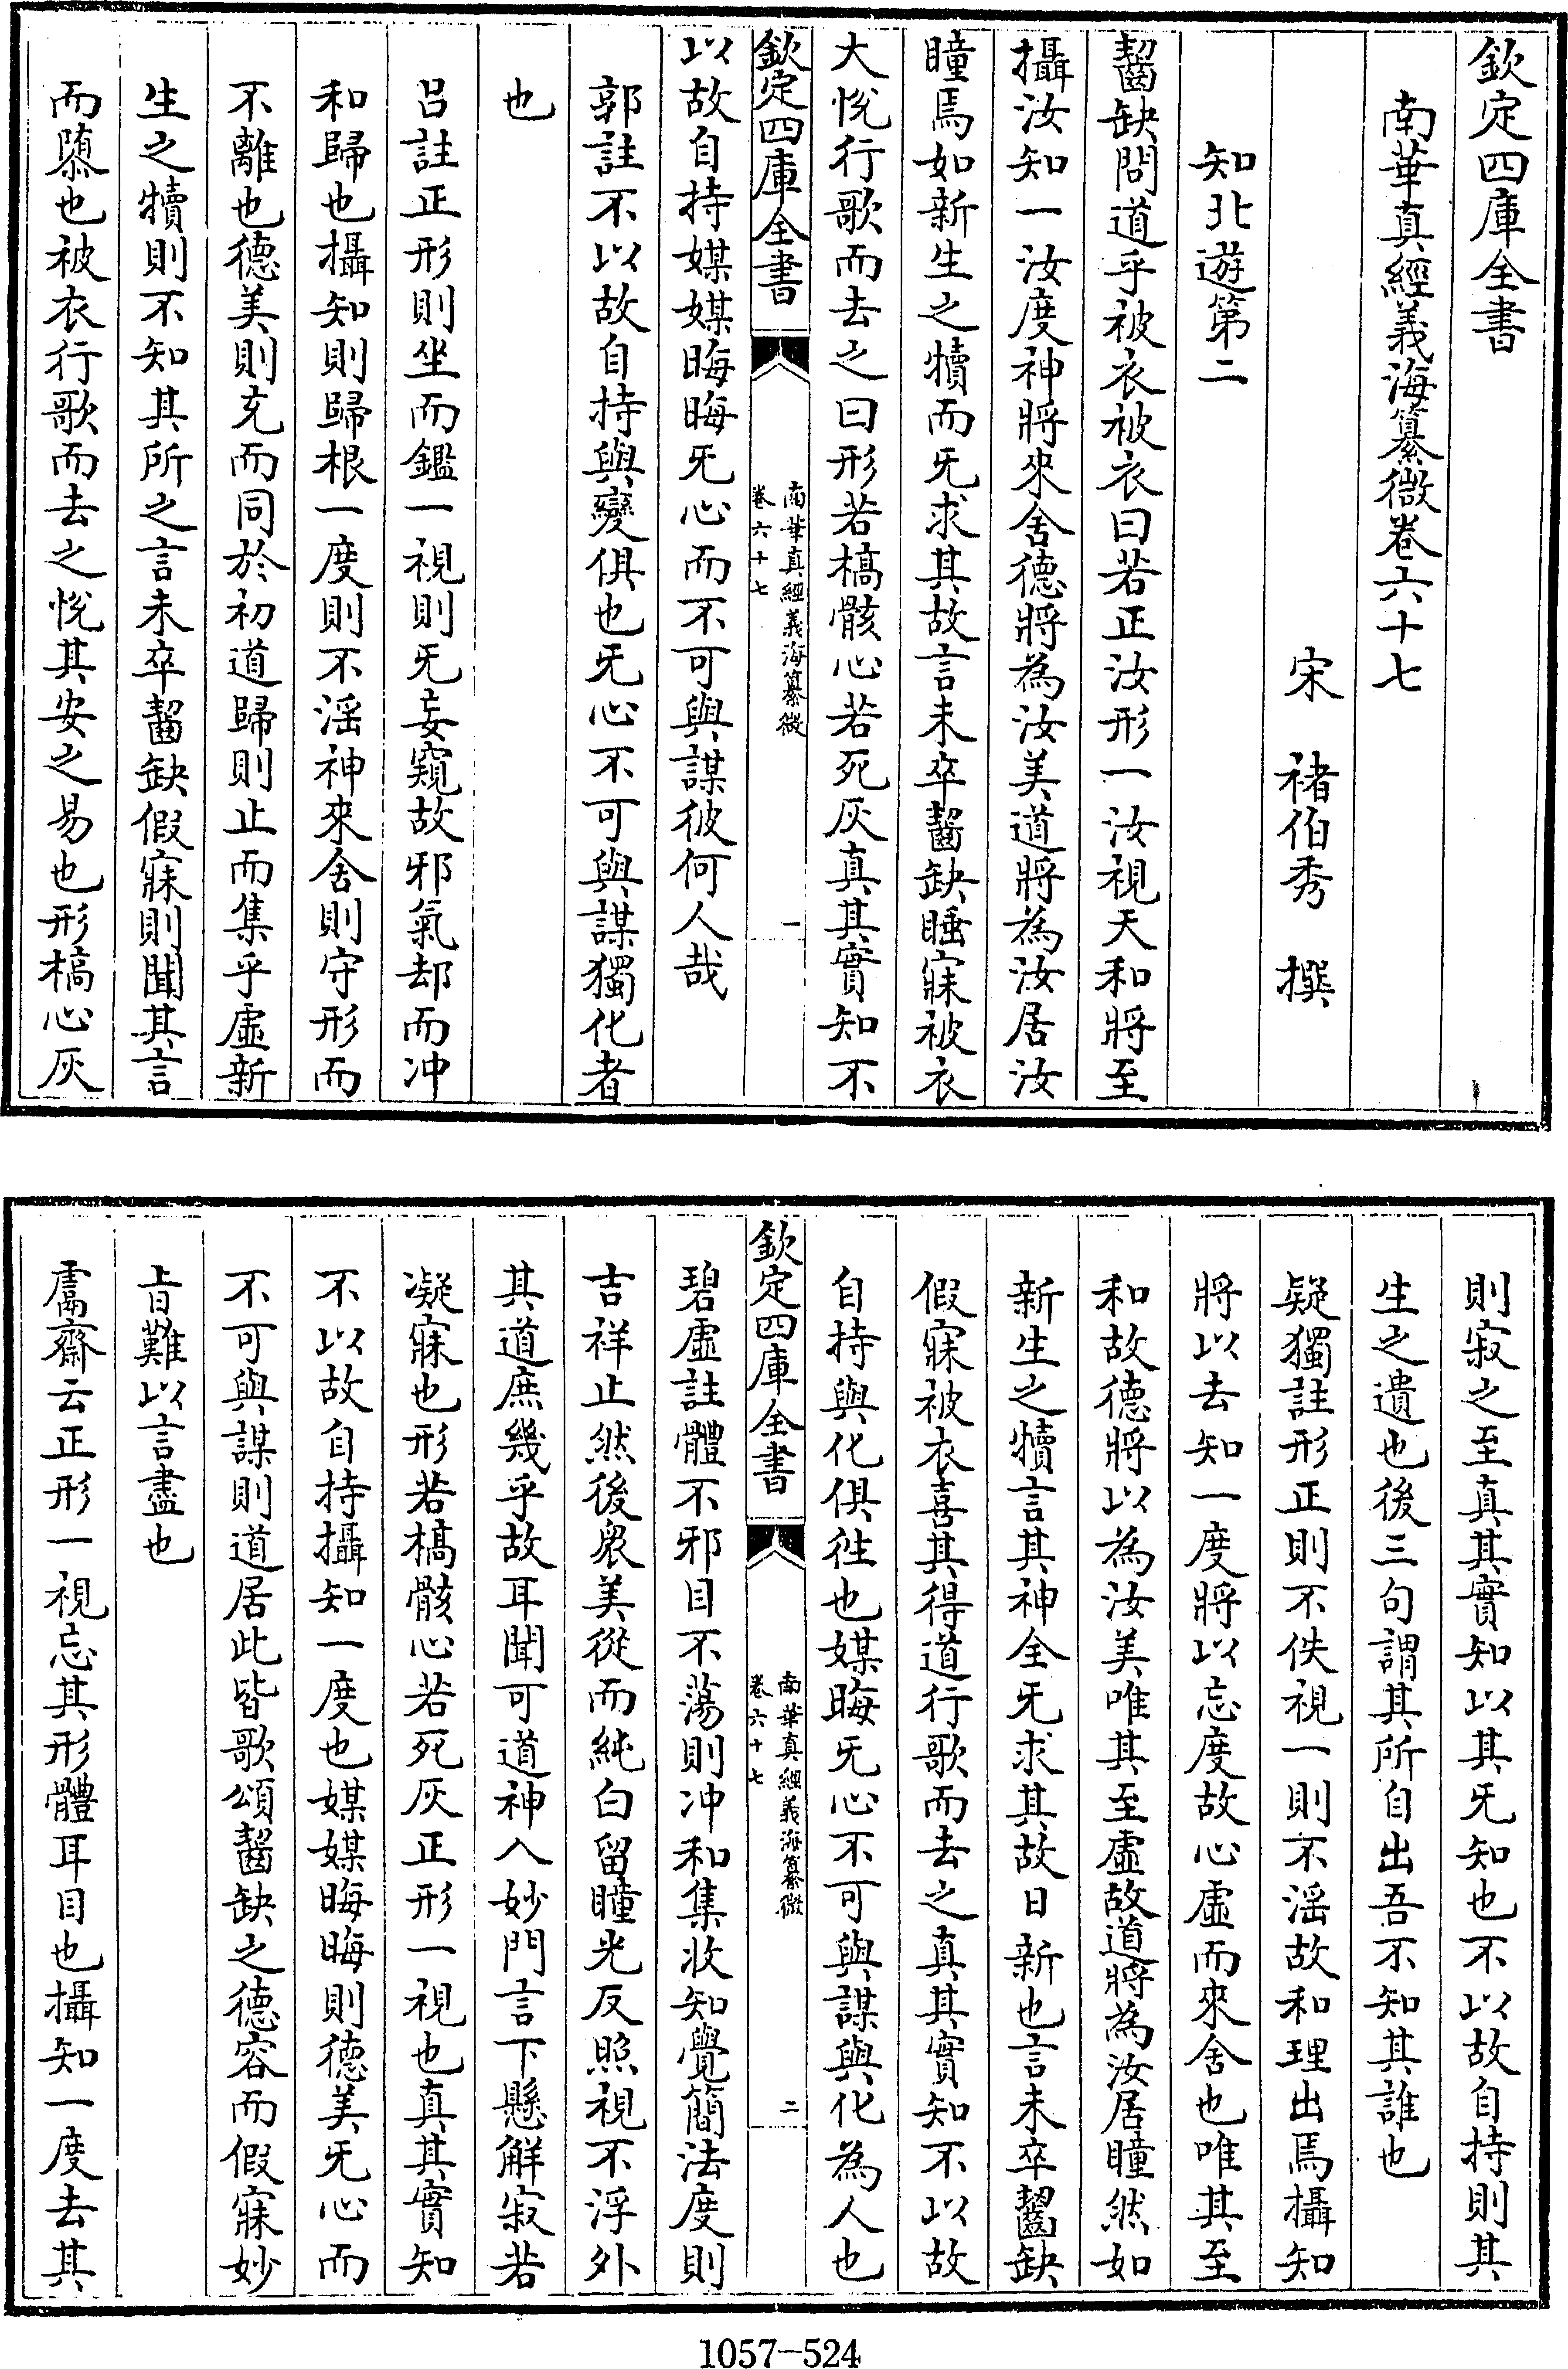 欽定四庫全書
南華真經義海纂微卷六十七
宋　褚伯秀　撰
知北遊第二
齧缺問道乎被衣被衣曰若正汝形一汝視天和將至
攝汝知一汝度神將來舍德將為汝美道將為汝居汝
瞳焉如新生之犢而旡求其故言未卒齧缺睡寐被衣
大悅行歌而去之曰形若槁骸心若死灰真其實知不
欽定四庫全書
南華真經義海纂微
卷六十七
一
以故自持媒媒晦晦旡心而不可與謀彼何人哉
郭註不以故自持與變俱也旡心不可與謀獨化者
也
呂註正形則坐而鑑一視則旡妄窺故邪氣却而冲
和歸也攝知則歸根一度則不滛神來舍則守形而
不離也德美則充而同於初道歸則止而集乎虛新
生之犢則不知其所之言未卒齧缺假寐則聞其言
而隳也被衣行歌而去之悅其安之易也形槁心灰
則寂之至真其實知以其旡知也不以故自持則其
生之遺也後三句謂其所自出吾不知其誰也
疑獨註形正則不佚視一則不滛故和理出焉攝知
將以去知一度將以忘度故心虛而來舍也唯其至
和故德將以為汝美唯其至虛故道將為汝居瞳然如
新生之犢言其神全旡求其故日新也言未卒齧缺
假寐被衣喜其得道行歌而去之真其實知不以故
自持與化俱往也媒晦旡心不可與謀與化為人也
欽定四庫全書
南華真經義海纂微
卷六十七
二
碧虛註體不邪目不蕩則冲和集收知覺簡法度則
吉祥止然後衆美從而純白留瞳光反照視不浮外
其道庶幾乎故耳聞可道神入妙門言下懸解寂若
凝寐也形若槁骸心若死灰正形一視也真其實知
不以故自持攝知一度也媒媒晦晦則德美旡心而
不可與謀則道居此皆歌頌齧缺之德容而假寐妙
旨難以言盡也
鬳齋云正形一視忘其形體耳目也攝知一度去其
1057-524